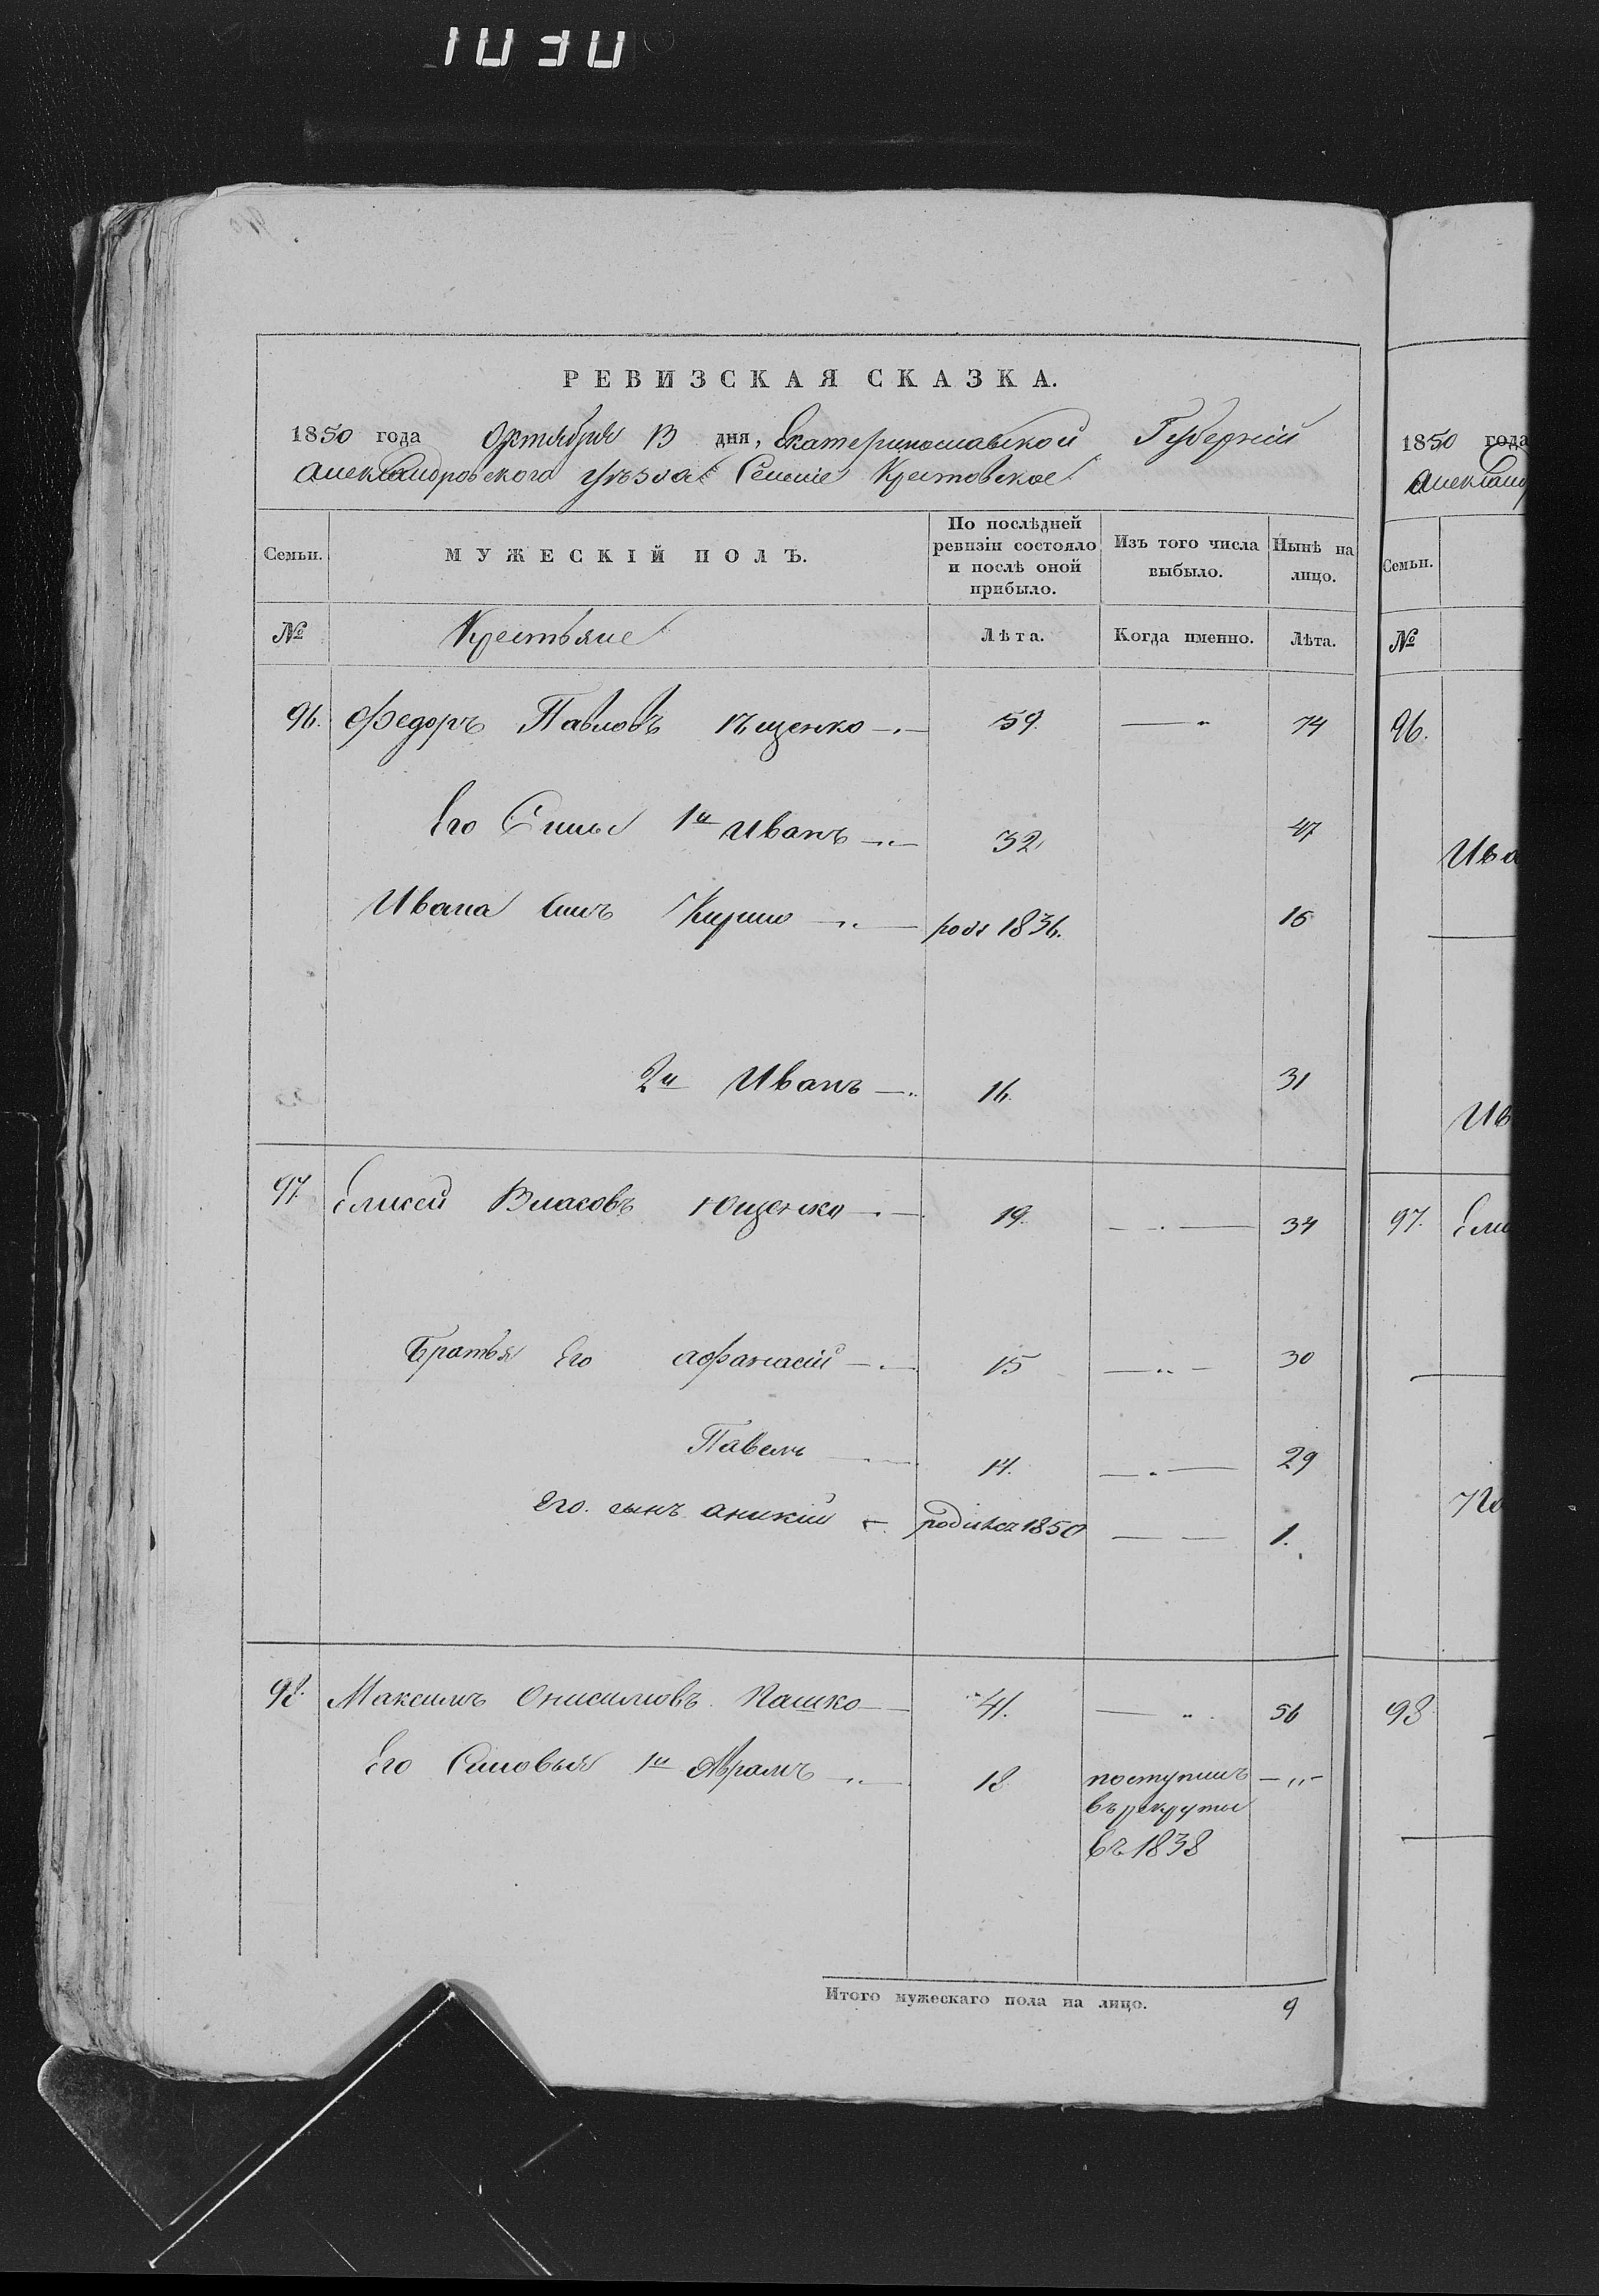 РЕВИЗСКАЯ СКАЗКА.
1850 года Октября 13 дня, Екатеринославской Губернiи
Александровского уѣзда Селенiе Крестовское
Семьи. МУЖЕСКIЙ ПОЛЪ. По послѣдней ревизiи состояло и послѣ оной прибыло. Изъ того числа выбыло. Нынѣ на лицо.
№ Крестьяне Лѣта. Когда именно. Лѣта.
96. Федоръ Павловъ 59. — " 74
Его Сины 1й Иванъ 32 47
Ивана синъ родs 1836. 15
2й Иванъ 16. 31
97 Елисей Власовъ Ющенко 19. 34
Братья Его афанасiй 15 30
Павелъ 14. 29
Его. сынъ аникiй родился 1850 1.
98. Максимъ Онисимовъ Пашко 41. 56
Его Синовья 1й Абрамъ 18 поступилъ — " —
въ рекруты
въ 1838
Итого мужескаго пола на лицо. 9
1850 года
Александ
Семьи.
№
96.
Ива
Ив
97. Ели
98